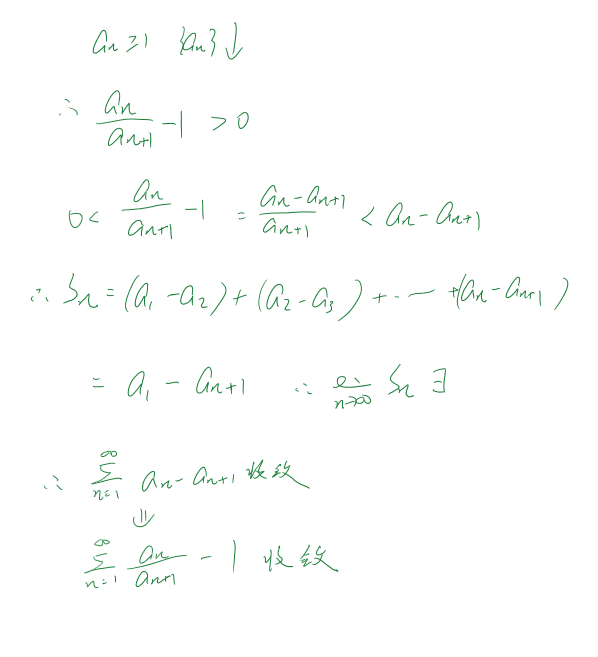 aₙ ≥ 1 {aₙ} ↓
∴ aₙ/aₙ₊₁ − 1 > 0
0 < aₙ/aₙ₊₁ − 1 = (aₙ − aₙ₊₁)/aₙ₊₁ < aₙ − aₙ₊₁
∴ Sₙ = (a₁ − a₂) + (a₂ − a₃) + ⋯ + (aₙ − aₙ₊₁)
= a₁ − aₙ₊₁ ∴ lim_{n→∞} Sₙ ∃
∴ ∑_{n=1}^{∞} aₙ − aₙ₊₁ 收敛
⇓
∑_{n=1}^{∞} aₙ/aₙ₊₁ − 1 收敛